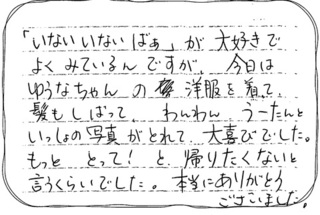 「いないいないばぁ」が 大好きで
よくみているんですが、今日は
ゆうなちゃんの 洋服を着て、
髪もしばって、わんわん うーたんと
いっしょの写真がとれて、大喜びでした。
もっと とって！と 帰りたくないと
言うくらいでした。本当にありがとう
ございました。